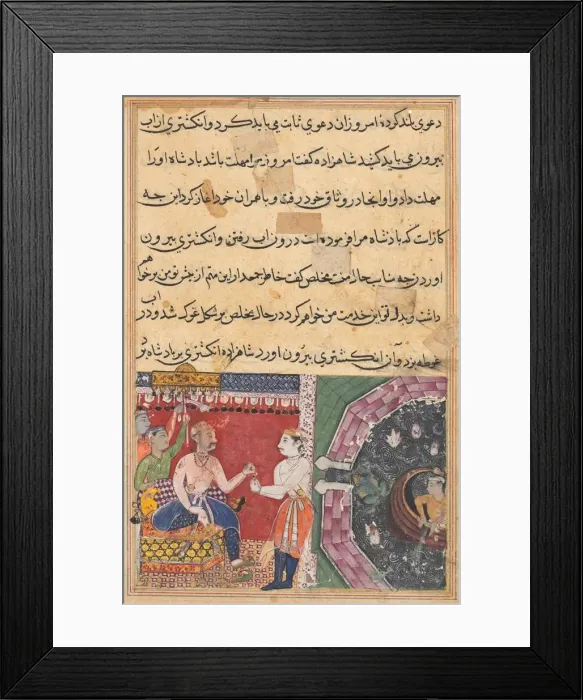 دعوی بلند کرده امروز ان دعوی ثابت می باید کرد و انکشتری از اب
بیرون می باید کشید شاهزاده کفت امروز مرا مهلت باشد بادشاه اورا
مهلت داد و او انجا در وثاق خود رفت و با همراهان خود اغاز کرد این چه
کارات که بادشاه مرا فرموده است درون اب رفتن و انکشتری بیرون
اوردن چه مناسب حال منست مخلص کفت خاطر جمع دار این مهم از پیش تو من بر خواهم
داشت و بدل تو این خدمت من خواهم کرد در حال مخلص بر شکل غوک شد و در اب
غوطه بزد و آن انکشتری بیرون اورد شاهزاده انکشتری بر بادشاه برد